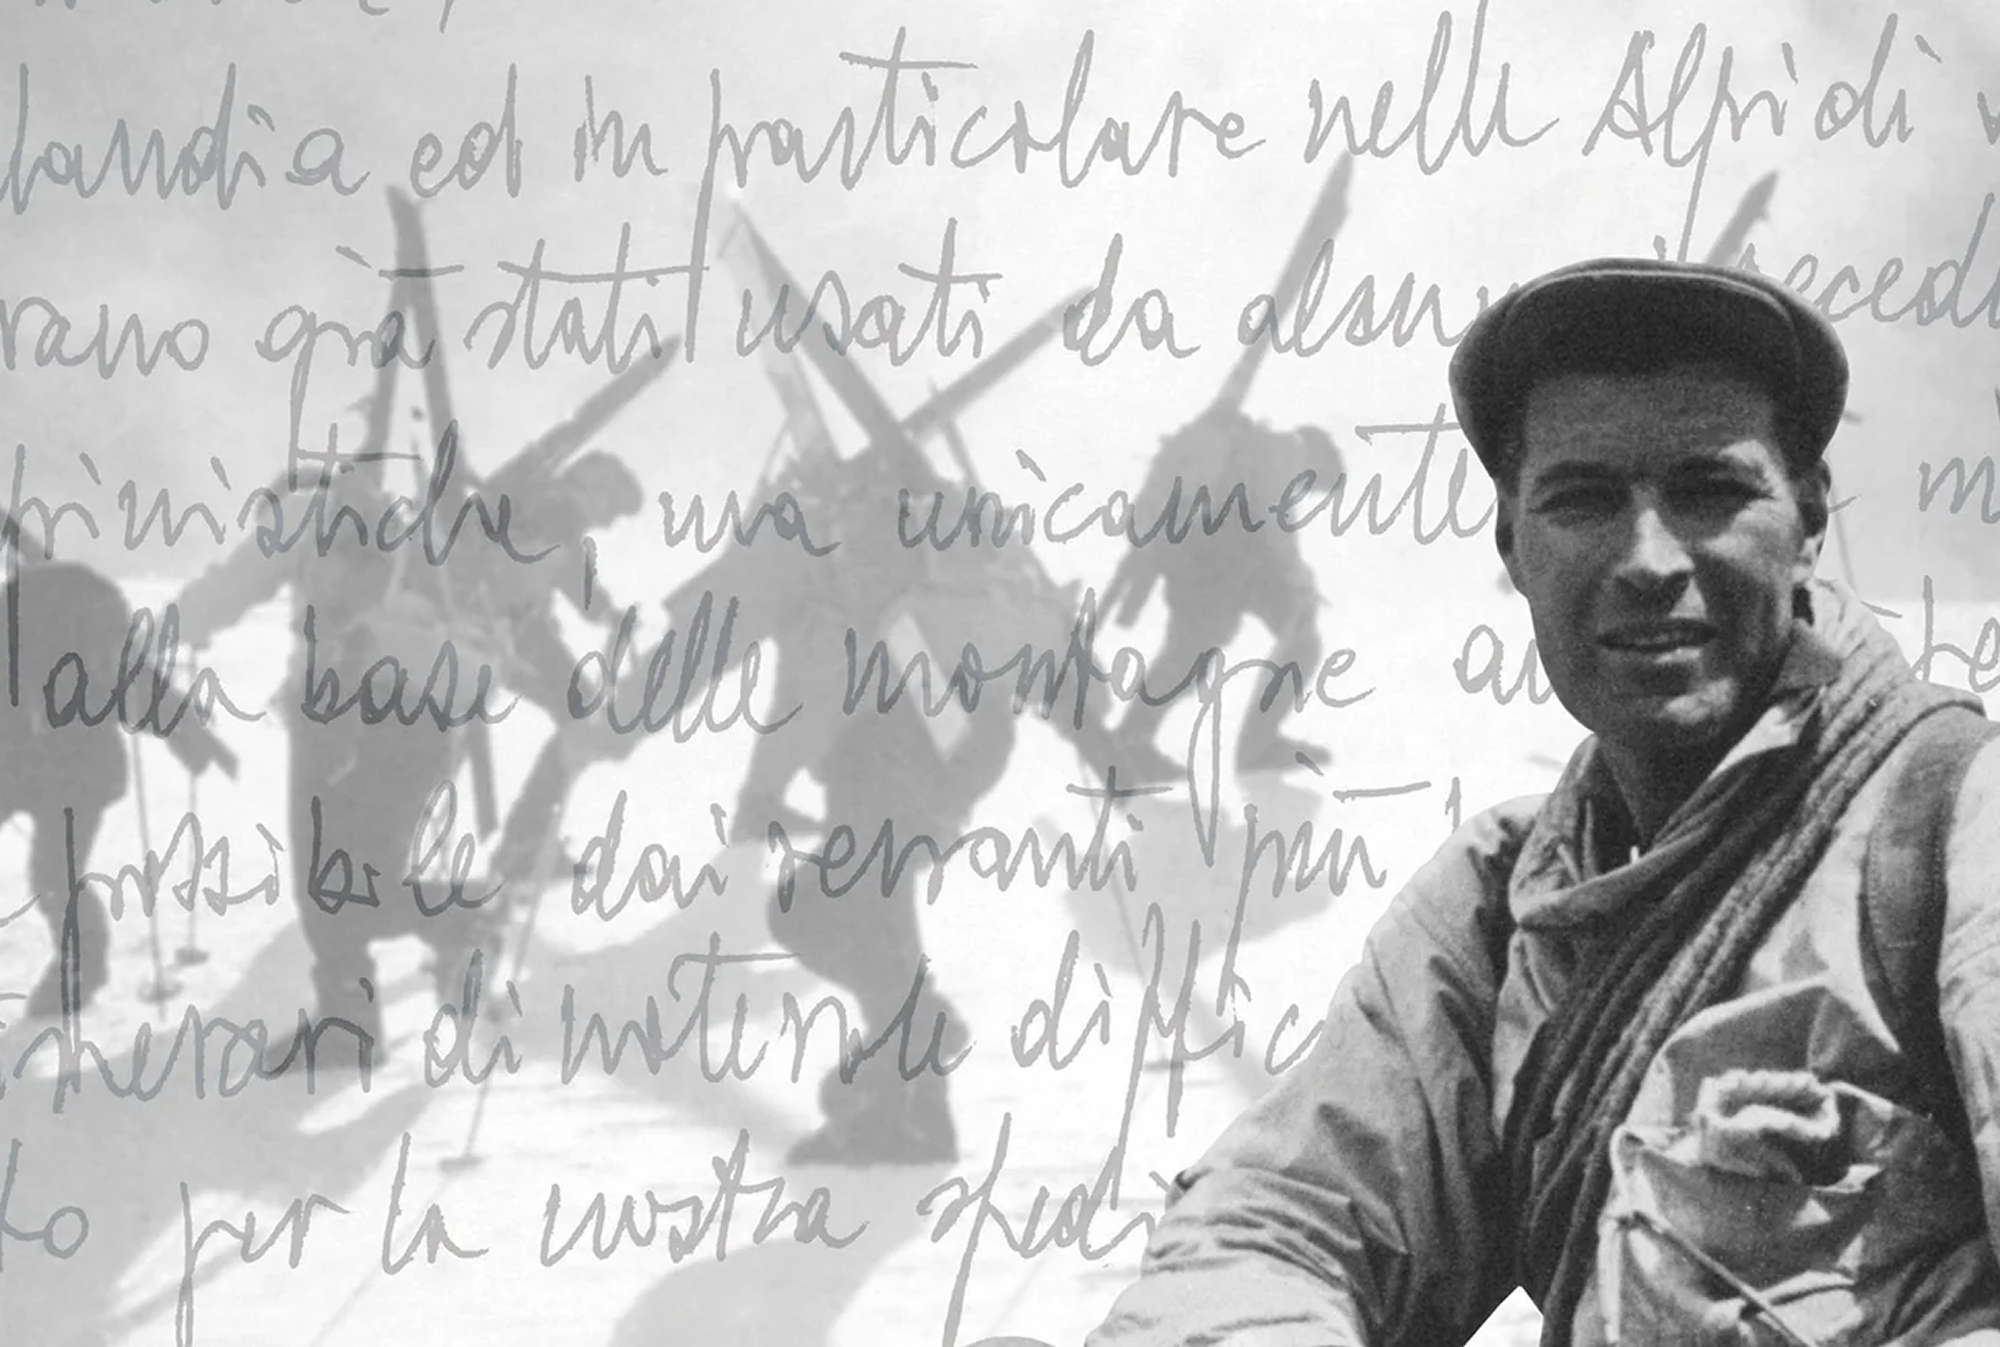 landia ed in particolare nelle Alpi di
rano già stati usati da alcun precedi
pinistiche, ma unicamente m
alla base delle montagne
possibile dai versanti più
itinerari di notevole diffic
to per la nostra spedi